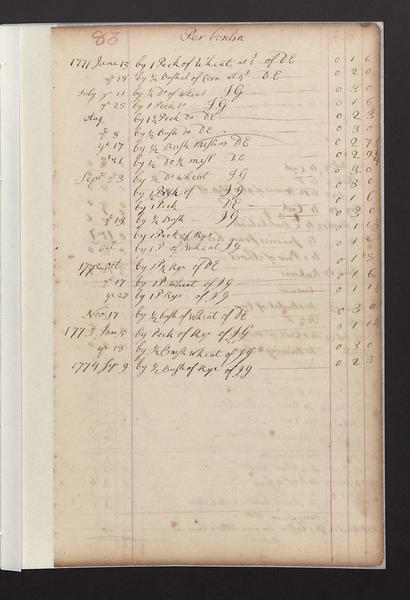 83 Per Contra
1771 June 13 by 1 Peck of Wheat at 6/ of DE 0 1 6
ye 14 by 1/2 Bushel of Corn at 4/ DE 0 2 0
July ye 11 by 1/2 Do of Wheat JG 0 3 0
ye 25 by 1 Peck Do JG 0 1 6
Aug by 1 1/2 Peck Do DE 0 2 3
ye 8 by 1/2 Bush Do DE 0 3 0
ye 17 by 1/2 Bush DE 0 2
ye 21 by 1/2 Do DE 0 2
Sept ye 3 by 1/2 Do Wheat JG 0 3 0
by 1/2 of JG 0 3 0
by 1 Peck DE 0 1 6
ye 19 by 1/2 Bush JG 0 3 0
by 1 Peck of Rye 0 1
Oct by 1 P of Wheat JG 0 1
1772 Oct by 1 P 1/2 Rye of DE 0 1
ye 17 by 1 P wheat of JG 0 1 6
ye 29 by 1 P Rye of JG 0 1 1 1/2
Nov 17 by 1/2 bush of Wheat of DE 0 3 0
1773 Jan by Peck of Rye of JG 0 1 1 1/2
ye 18 by 1/2 Bush Wheat of JG 0 3 0
1774 Sep 9 by 1/2 Bush of Rye of JG 0 2 3